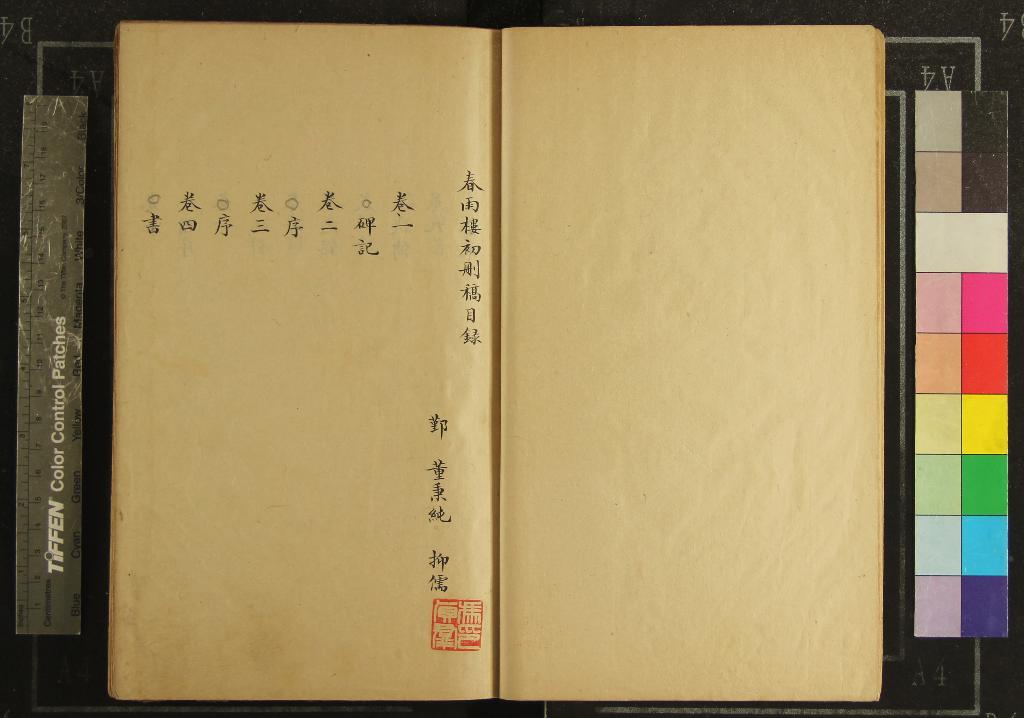 春雨樓初刪稿目録
鄞 董秉純 抑儒
卷一
碑記
卷二
序
卷三
序
卷四
書
TIFFEN Color Control Patches
Blue
Cyan
Green
Yellow
Red
Magenta
White
3/Color
Black
Centimetres
A4
B4